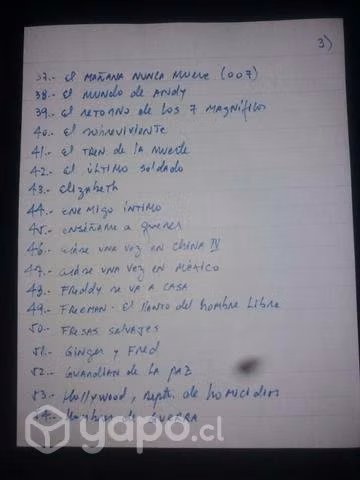 3)
37.- El MAÑANA NUNCA MUERE (007)
38.- El MUNDO de ANDY
39.- El RETORNO de LOS 7 MAGNÍFICOS
40.- El SOBREVIVIENTE
41.- El TREN de la MUERTE
42.- El ÚLTIMO SOLDADO
43.- Elizabeth
44.- ENEMIGO ÍNTIMO
45.- ENSÉÑAME a querer
46.- ERASE UNA VEZ EN CHINA IV
47.- ERASE UNA VEZ EN MÉXICO
48.- FREDDY se VA A CASA
49.- FREEMAN - El llanto del hombre Libre
50.- FRESAS SALVAJES
51.- GINGER y FRED
52.- GUARDIAN de LA PAZ
53.- Hollywood, Dpto. de homicidios
54.- Hombres de GUERRA
yapo.cl